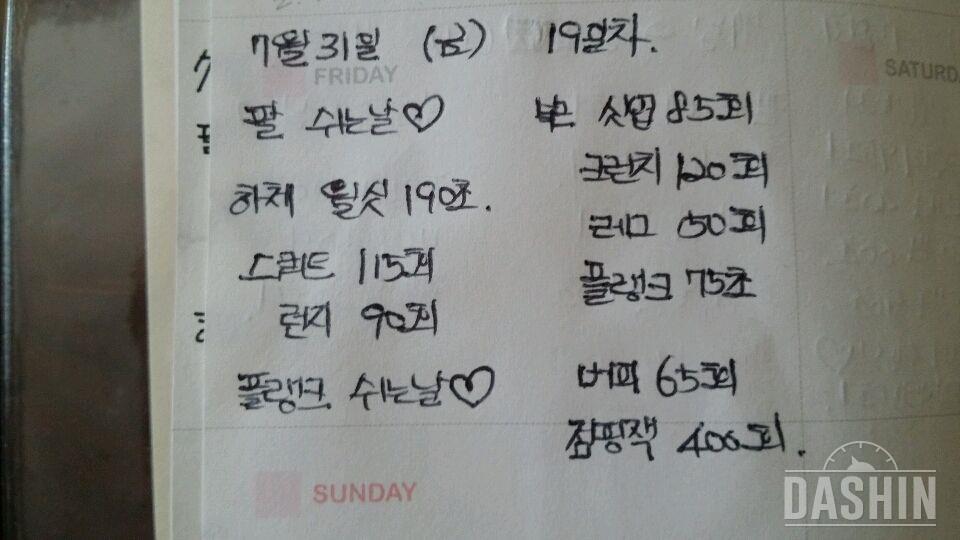 7월 31일 (금) 19일차.
FRIDAY
SATURD
팔 쉬는날♡
하체 월싯 190초.
스쿼트 115회
런지 90회
플랭크 쉬는날♡
싯업 85회
크런치 120회
레그 50회
플랭크 75초
버피 65회
점핑잭 400회.
SUNDAY
DASHIN